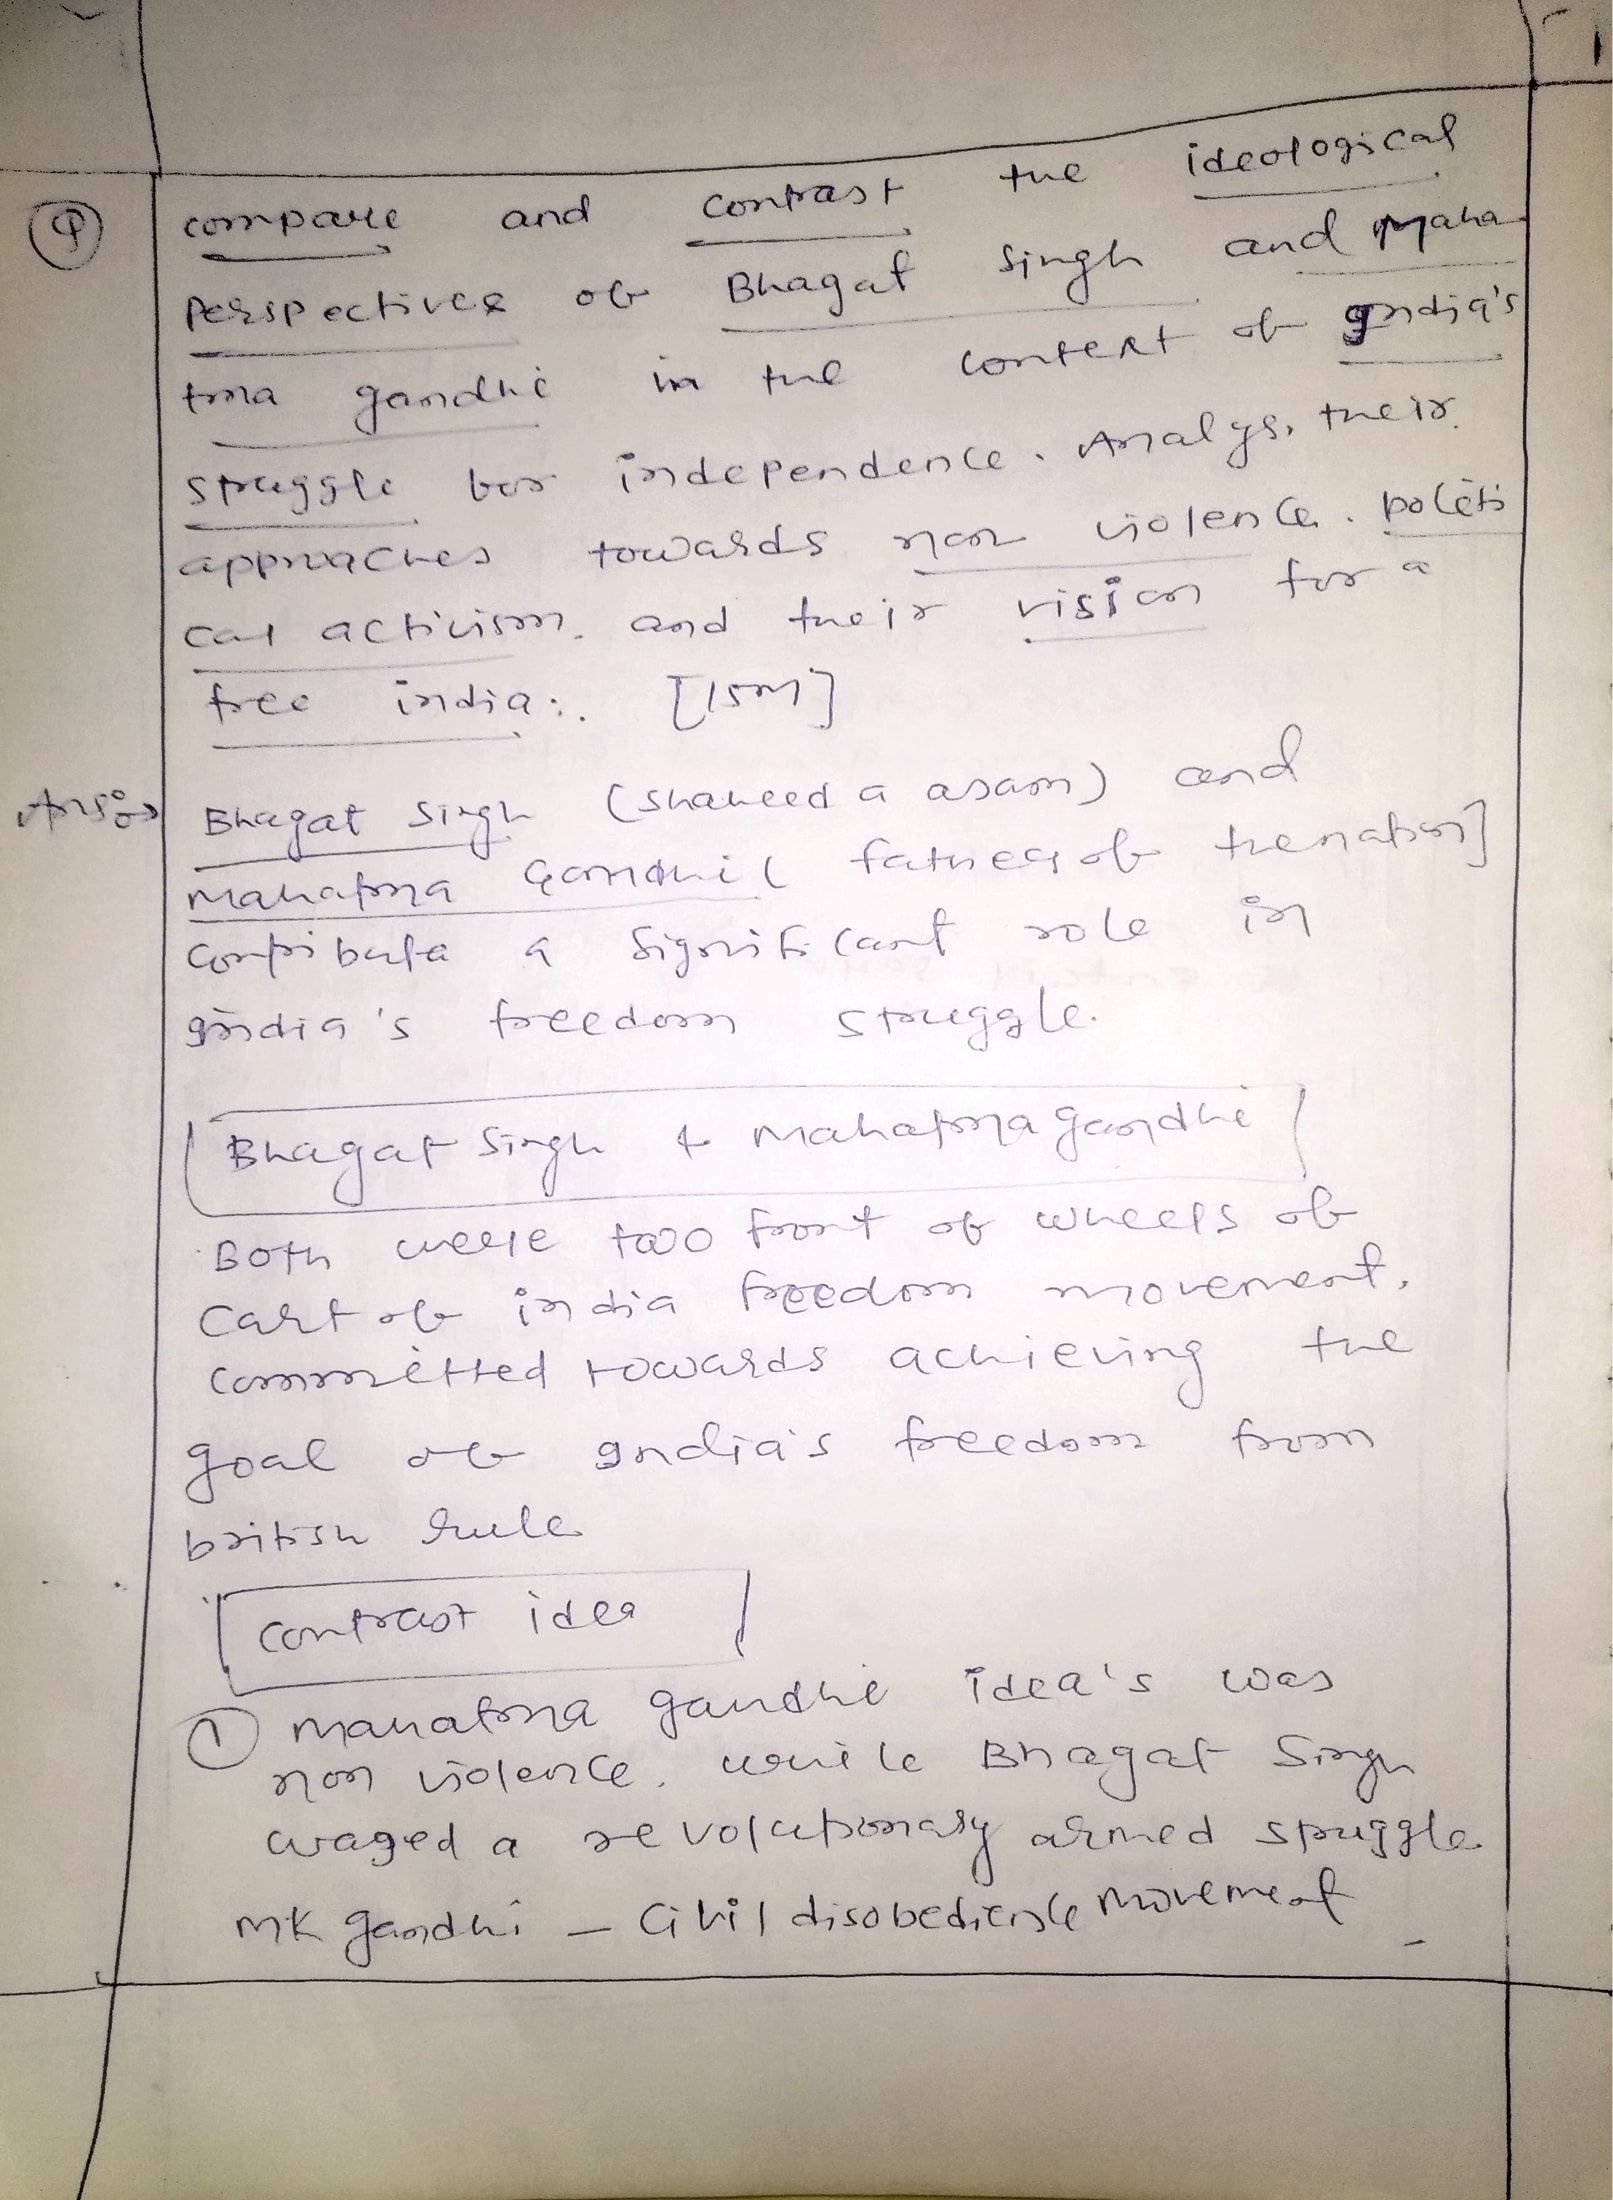 1
Q compare and contrast the ideological
Perspectives of Bhagat Singh and Maha
tma gandhi in the context of India's
struggle for independence. Analys, their
approaches towards non violence. politi
cal activism. and their vision for a
free india:. [15m]
Ans:→ Bhagat Singh (shaheed a asam) and
Mahatma Gandhi ( father of the nation]
contribute a significant role in
India's freedom struggle.
Bhagat Singh & Mahatma gandhi
Both were two front of wheels of
cart of india freedom movement.
committed towards achieving the
goal of India's freedom from
british rule
contrast idea
1 Mahatma gandhi idea's was
non violence. while Bhagat Singh
waged a revolutionary armed struggle.
MK gandhi - Civil disobedience Movement -